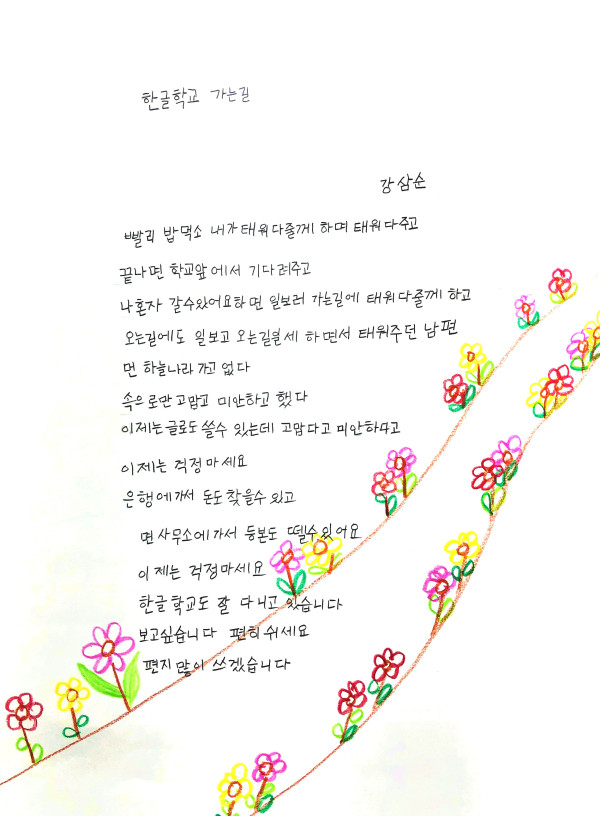 한글학교 가는길
강삼순
빨리 밥먹소 내가 태워다줄께 하며 태워다주고
끝나면 학교앞에서 기다려주고
나혼자 갈수있어요하면 일보러 가는길에 태워다줄께 하고
오는길에도 일보고 오는길일세 하면서 태워주던 남편
먼 하늘나라 가고 없다
속으로만 고맙고 미안하고 했다
이제는 글로도 쓸수 있는데 고맙다고 미안하다고
이제는 걱정마세요
은행에가서 돈도 찾을수 있고
면사무소에가서 등본도 뗄수있어요
이제는 걱정마세요
한글학교도 잘 다니고 있습니다
보고싶습니다 편히쉬세요
편지 많이 쓰겠습니다